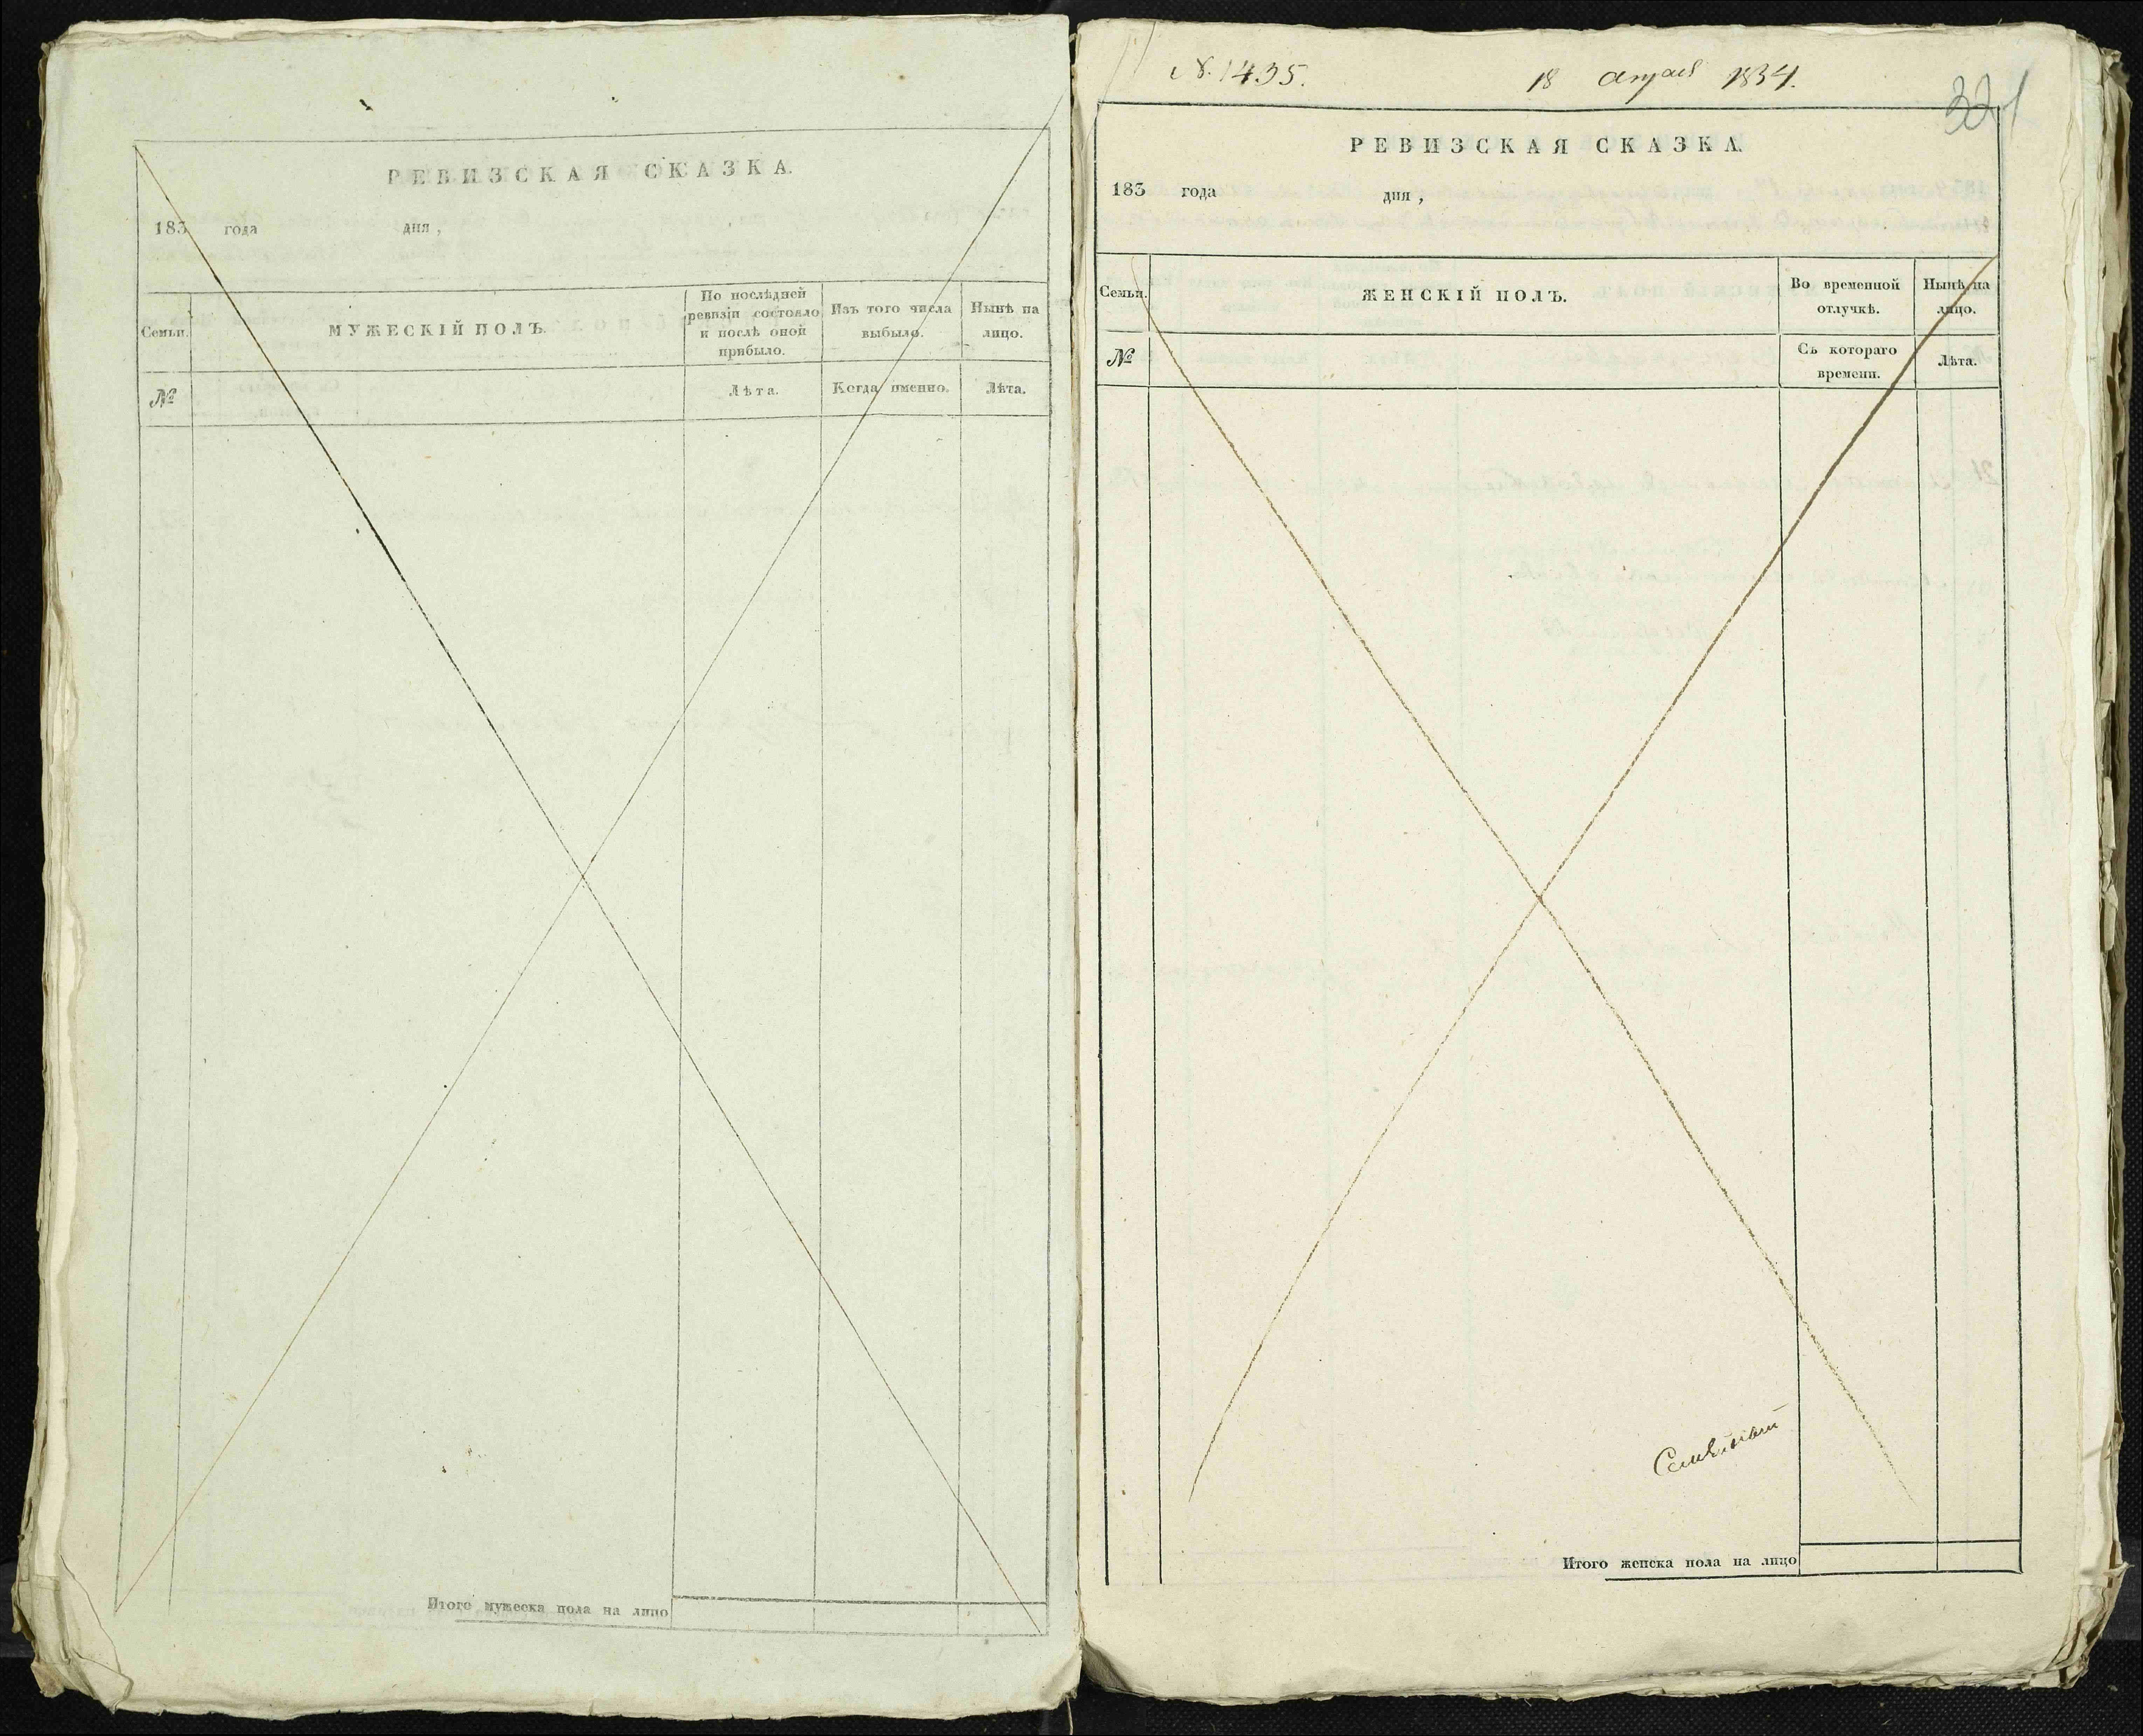 РЕВИЗСКАЯ СКАЗКА.
183 года дня,
Семьи.
МУЖЕСКІЙ ПОЛЪ.
По послѣдней
ревизіи состояло
и послѣ оной
прибыло.
Изъ того числа
выбыло.
Нынѣ на
лицо.
№
Лѣта.
Когда именно.
Лѣта.
Итого мужеска пола на лицо
№ 1435.
18 апрѣля 1834.
321
РЕВИЗСКАЯ СКАЗКА.
183 года дня,
Семьи.
ЖЕНСКІЙ ПОЛЪ.
Во временной
отлучкѣ.
Нынѣ на
лицо.
№
Съ котораго
времени.
Лѣта.
Итого женска пола на лицо